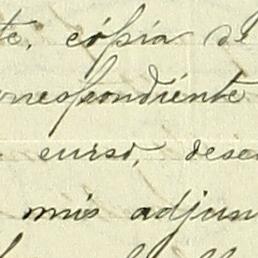 te, cópia de
rrespondiénte
curso, dese
mis adjun